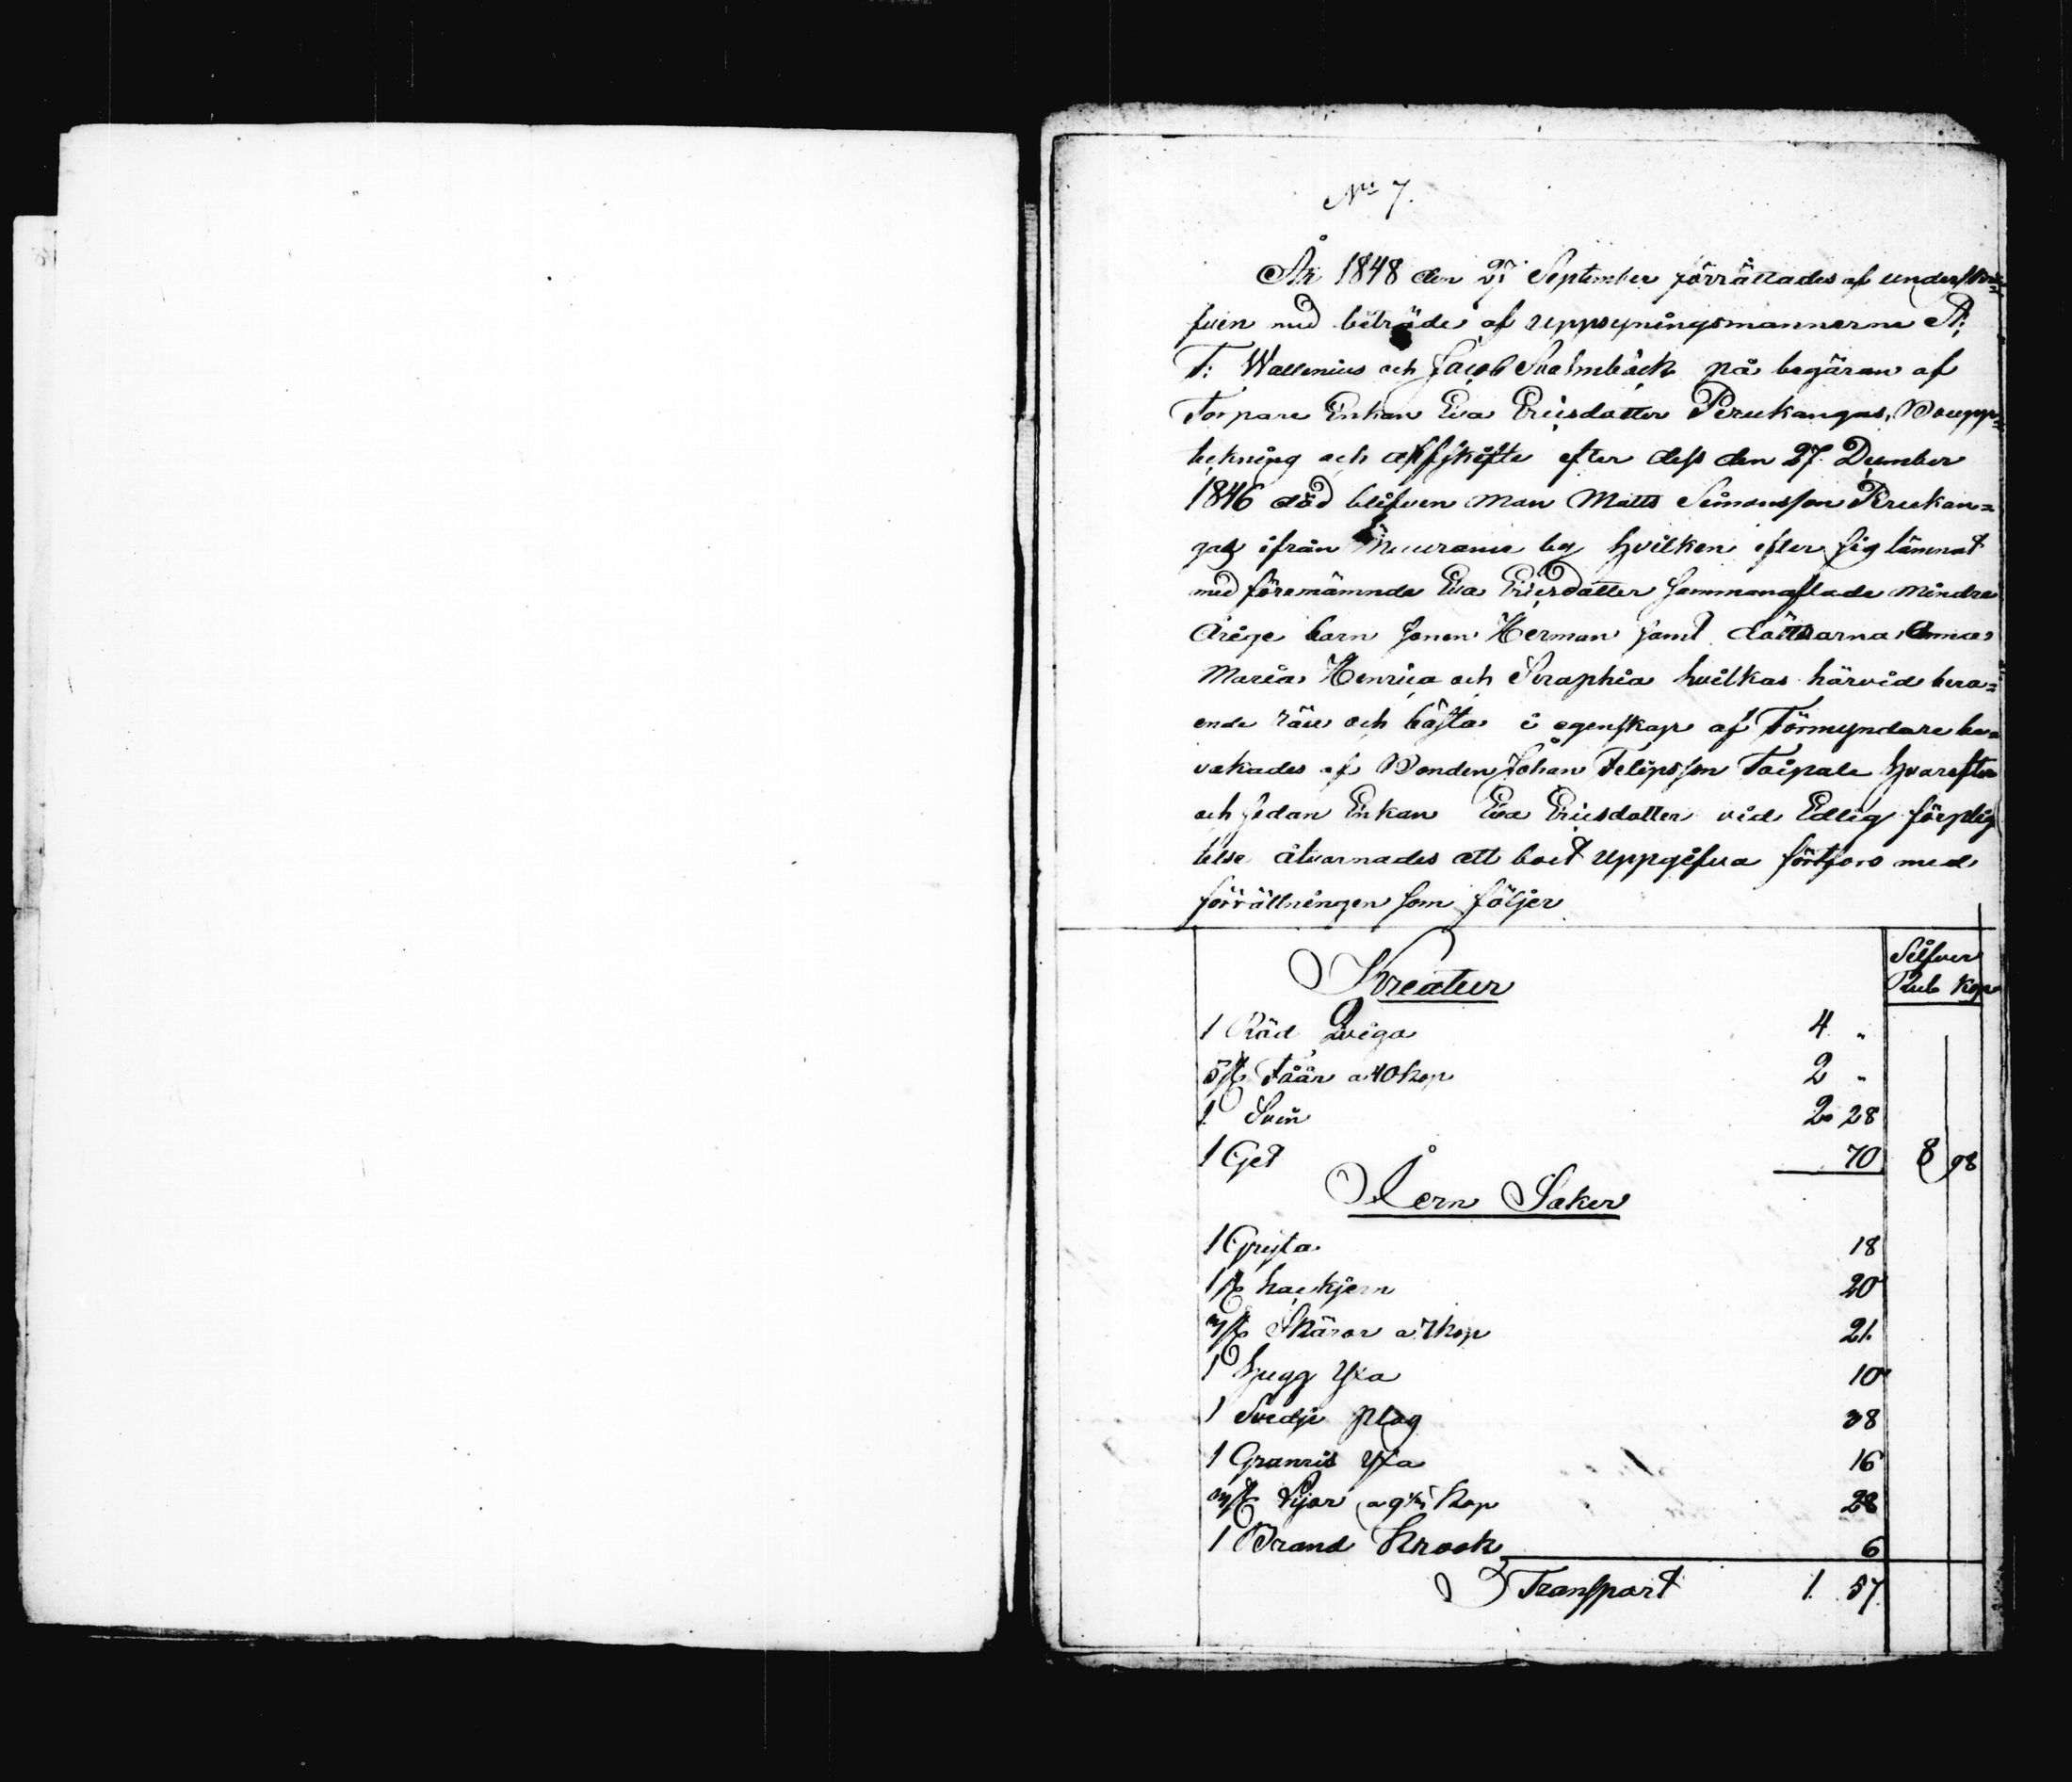 No 7.
År 1848 den 27 September förrättades af underskri=
fven med beträde af uppsyningsmannerne A:
T: Wallenius och Jacob Svahnbäck på begäran af
Torpare Enkan Eva Ericsdotter Perukangas, Boupp=
tekning och afskifte efter dess den 27 December
1846 död blifven Man Matts Simonsson Perukan=
gas ifrån by hvilken efter sig lämnat
med förenämnde Eva Ericsdotter sammanaflade Mindre
Årige barn Sonen Herman samt döttrarna Anna
Maria Henrica och Seraphia hvilkas härvid bero=
ende rätt och bästa i egenskap af Förmyndare be=
vakades af Bonden Johan Felipsson Taipale hvarefter
och sedan Enkan Eva Ericsdotter vid Edlig förplig
telse åtvarnades att boet uppgifva fortfors med
förrättningen som följer
Silfver
Kreatur Rub Kop
1 Röd Qviga 4 "
5 st Fåår a 40 kop 2 "
1 Svin 2 28
1 Get 70 8 98
Jern Saker
1 Gryta 18
1 st hackjern 20
3 st Skäror a 7 kop 21
1 hugg Yxa 10
1 Svedje plog 38
1 Granris Yxa 16
3 st Lijor a 9 1/3 kop 28
1 Brand Krook 6
Transport 1 57